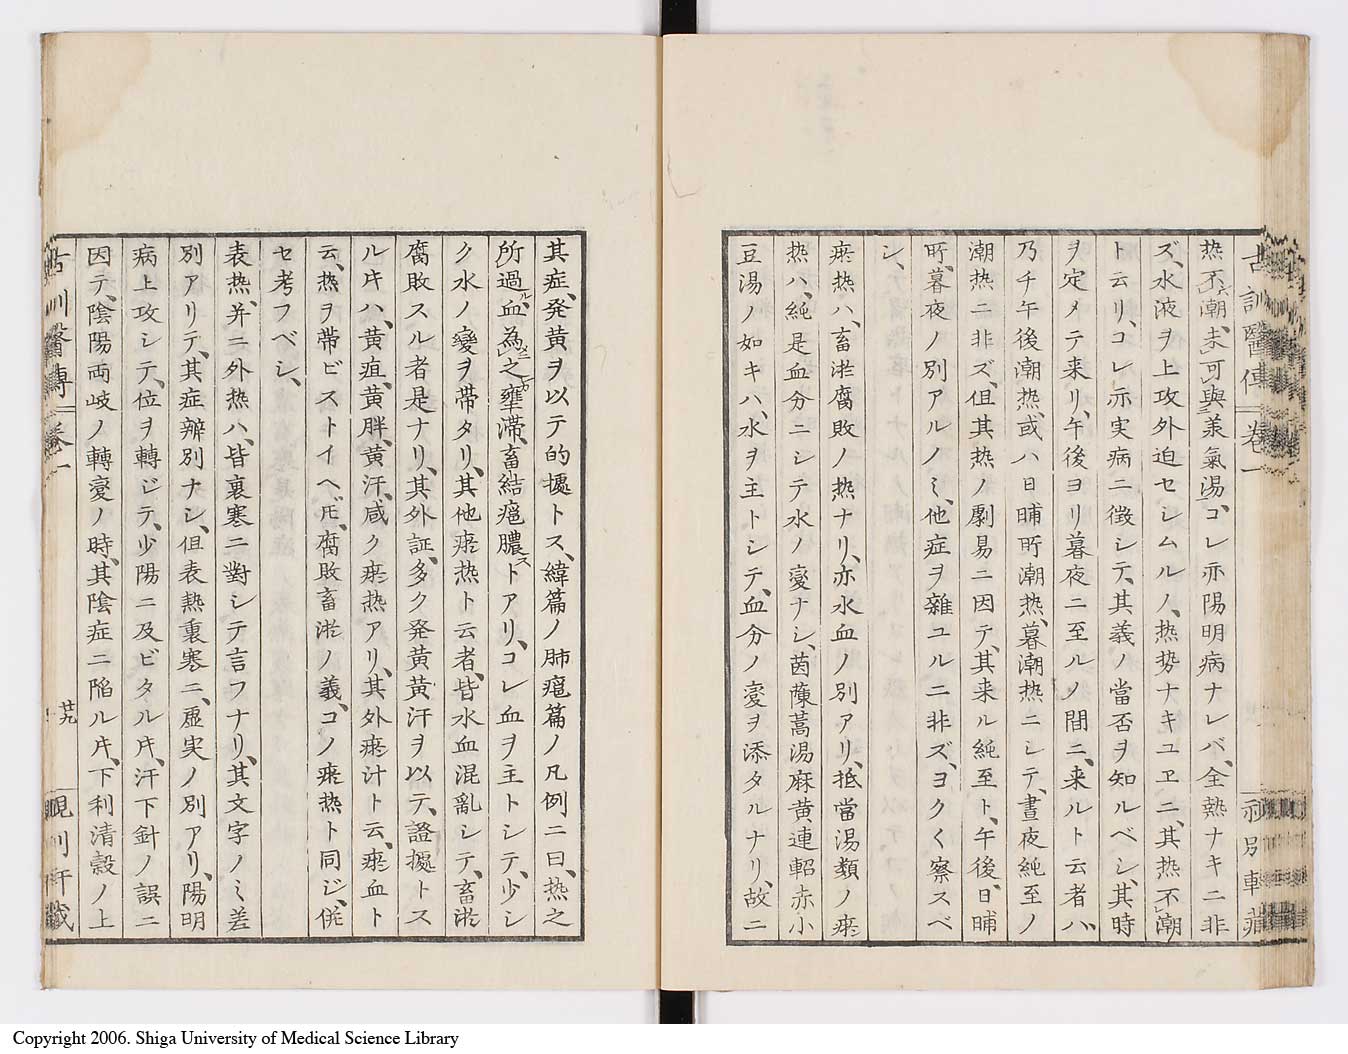 古訓醫傳 卷一
熱不潮、未可與承氣湯、コレ亦陽明病ナレバ、全熱ナキニ非
ズ、水液ヲ上攻外迫セシムルノ、热势ナキユヱニ、其热不潮
ト云リ、コレ亦実病ニ徴シテ、其義ノ當否ヲ知ルベシ、其時
ヲ定メテ来リ、午後ヨリ暮夜ニ至ルノ間ニ、来ルト云者ハ、
乃チ午後潮热、或ハ日晡所潮热、暮潮热ニシテ、晝夜純至ノ
潮热ニ非ズ、但其热ノ劇易ニ因テ、其来ル純至ト、午後、日晡
所、暮夜ノ別アルノミ、他症ヲ雜ユルニ非ズ、ヨクく察スベ
シ、
瘀热ハ、畜淤腐敗ノ热ナリ、亦水血ノ別アリ、抵當湯類ノ瘀
热ハ、純是血分ニシテ水ノ変ナシ、茵蔯蒿湯麻黄連軺赤小
豆湯ノ如キハ、水ヲ主トシテ、血分ノ変ヲ添タルナリ、故ニ
其症、発黄ヲ以テ的據トス、緯篇ノ肺癰篇ノ凡例ニ曰、热之
所過、血為之壅滞、畜結癰膿ストアリ、コレ血ヲ主トシテ、少シ
ク水ノ變ヲ帯タリ、其他瘀热ト云者、皆水血混亂シテ、畜淤
腐敗スル者是ナリ、其外証、多ク発黄黄汗ヲ以テ、證據トス
ル片ハ、黄疸、黄胖、黄汗、咸ク瘀热アリ、其外瘀汁ト云、瘀血ト
云、热ヲ帶ビストイヘ𪜈、腐敗畜淤ノ義、コノ瘀热ト同ジ、併
セ考フベシ、
表热、并ニ外热ハ、皆裏寒ニ對シテ言フナリ、其文字ノミ差
別アリテ、其症辨別ナシ、但表熱裏寒ニ、虚実ノ別アリ、陽明
病上攻シテ、位ヲ轉ジテ、少陽ニ及ビタル片、汗下針ノ誤ニ
因テ、陰陽両岐ノ轉変ノ時、其陰症ニ陷ル片、下利清穀ノ上
古訓醫傳 卷一
廿九